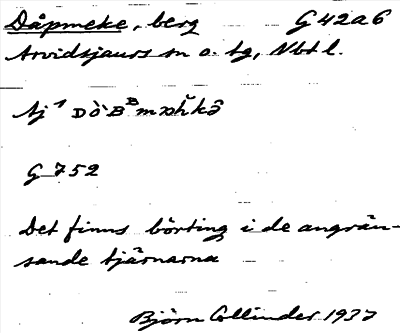 Dåpmeke, berg G 42 a 6
Arvidsjaurs sn o. tg, Nbt l.
G 752
Det finns börting i de angrän-
sande tjärnarna
Björn Collinder 1937